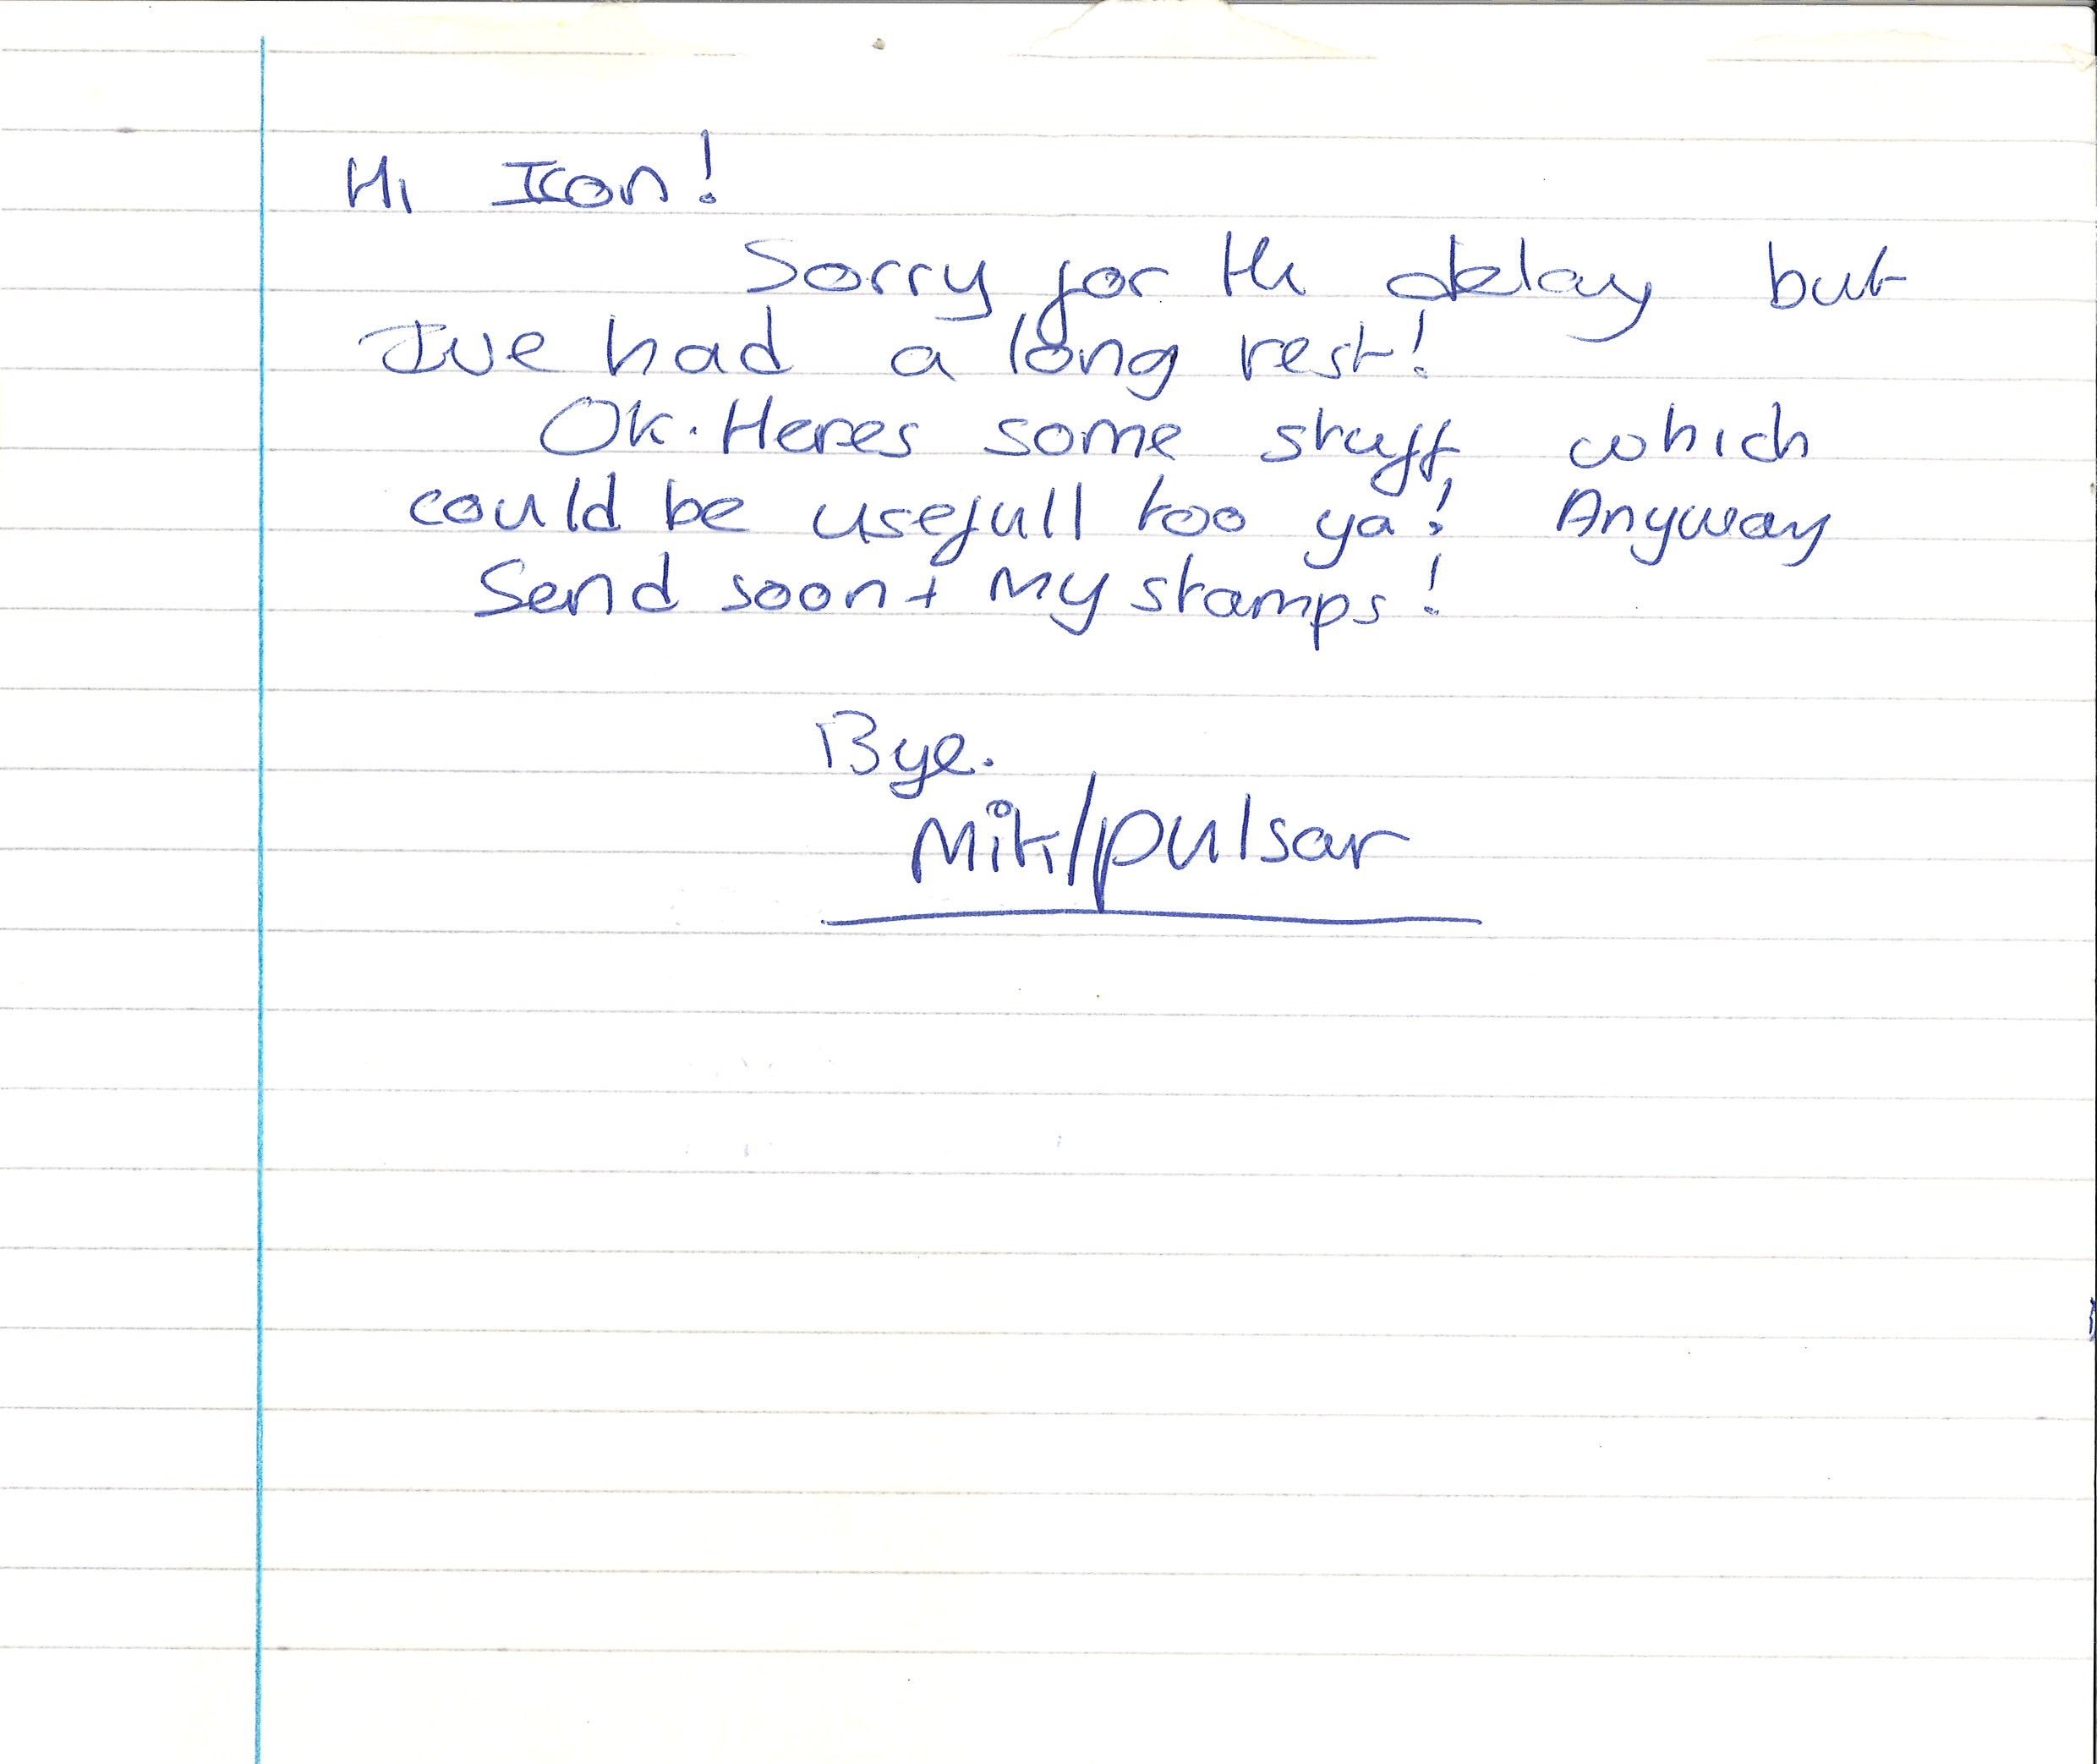 Hi Icon!
Sorry for the delay but
Ive had a long rest!
Ok. Heres some stuff which
could be usefull too ya! Anyway
Send soon + my stamps!
Bye.
Mik/pulsar